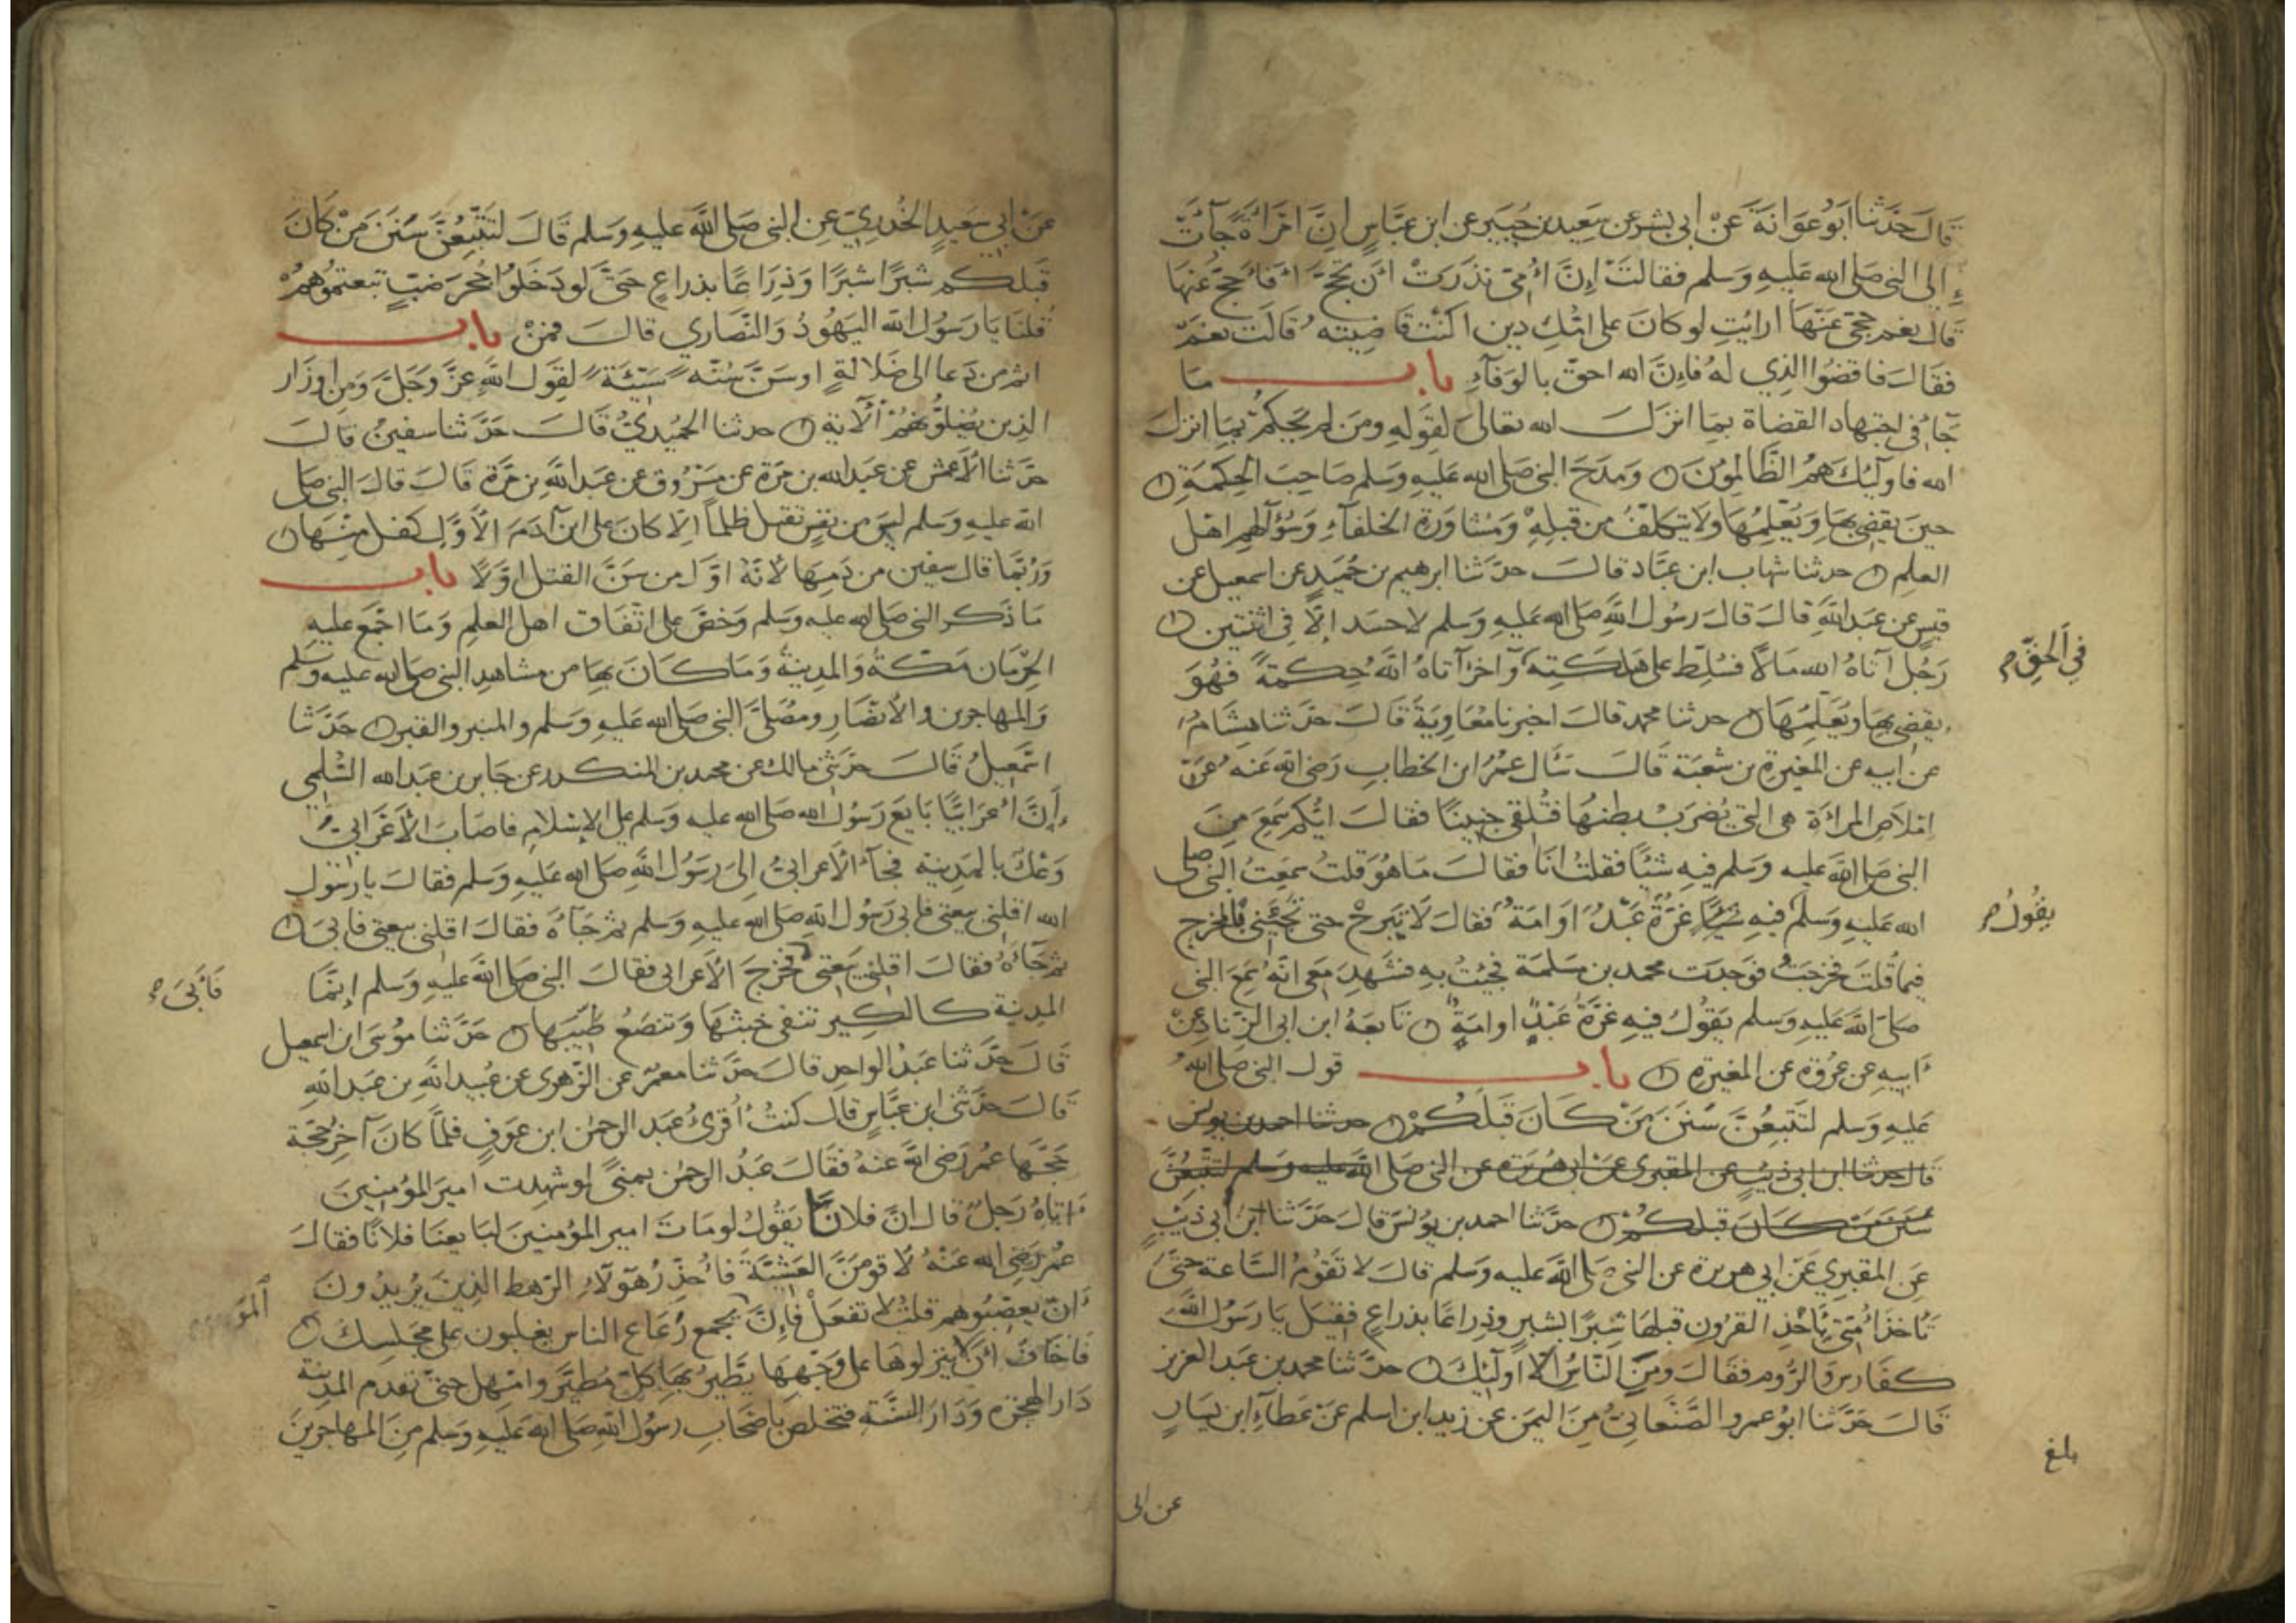 قَالَ حَدَّثَنَا ابَوُ عَوَانَةَ عَنْ ابى بشر عن سَعِيد بن جُبَيرٍ عن ابن عبَّاسٍ انِّ امْرَأةً جَآئَت
إلى النبى صَلى الله عَليهِ وسَلم فقالتَ إنَّ أُمِّى نذَرَتْ أن تحجَّ أفأحجّ عَنهَا
قَال نعَم حجّى عَنهَا ارايْتِ لو كانَ على امّكِ دين اكنْتِ قَاضِيتَه قالت نعَمْ
فقالَ فاقضُوا الذِي لهُ فإنَّ الله احقّ بالوَفآءِ بابـــ مَا
جَآءَ فى اجتهاد القضاة بمَا انزلَ الله تعالى لقَولهِ ومَن لم يحكمْ بمَا انزلَ
الله فاولئِك همُ الظَّالمِونَ ۞ وَمدَحَ النبى صَلى الله عَليهِ وَسَلم صَاحِبَ الحِكمَةِ ۞
حينَ يقضِى بهَا وَيُعَلِّمُهَا ولا يتكلّفُ من قبلِهِ وَمُشاوَرة الخلفآءِ وَسُؤَالهِم اهْل
العِلم ۞ حدثنا شهاب ابن عبّاد قالَ حدّثنا ابرهيم بن حُمَيدٍ عن اسمعيل عن
قيسٍ عن عبَد اللهِ قالَ قالَ رسُول اللهِ صَلى الله عَليهِ وَسَلم لا حسَد إلّا فِى اثنتين ۞
رَجُل آتاهُ الله مَالاً فسُلِّط على هَلكتِهِ وَآخر آتاهُ اللهُ حِكمةً فهُوَ
يقضِى بهَا ويُعَلِّمُهَا ۞ حدثنا محمد قالَ اخبرنا مُعَاوِيَةُ قَالَ حَدَّثنا هِشامُ
عن ابيه عن المُغيرةِ بن شعْبَة قَالَ سَأل عمُرُ ابن الخطابِ رَضى الله عَنهُ عَنْ
امْلاصِ المرأة هى التِى يُضرَبُ بطنهَا فتُلقى جنينًا فقالَ ايّكم سَمِعَ مِنَ
النبى صَلى اللهُ عليه وَسَلم فِيهِ شَيْئًا فقلتُ انَا فقالَ مَا هُوَ قلتُ سَمعِتُ النبى صلى
الله عَليهِ وَسَلم فيهِ شيئا غرَّةٌ عَبْدٌ اوَ امَةٌ فقالَ لَا تَبرحْ حتى تجيَئنى بالمخرج
فيما قلتَ فخرَجتُ فوَجدت محمد بن مسَلمَة فجئتُ بهِ فشَهِدَ مَعى انّهُ سَمِعَ النبى
صَلىَ اللهُ عَليهِ وَسَلم يَقُولُ فيهِ غرَّةٌ عَبْدٍ او امَةٍ ۞ تَابعَهُ ابن ابى الزّناد عَنْ
أبيهِ عن عُرْوَة عن المغيرةِ ۞ بابـــ قول النبى صَلى اللهُ
عَليهِ وَسَلم لتَتَبِعُنَّ سُننَ مَنْ كَانَ قَبلَكُمْ ۞ حدثنا احمد بن يونس
قال حدثنا ابن ابى ذئبٍ عن المقبرى عن ابى هُريرَة عن النبى صَلى اللهُ عليه وَسَلم لتتَّبعُنَّ
سُننَ مَنْ كَانَ قبلكمُ ۞ حدَّثنا احمد بن يوُنسَ قالَ حَدّثنا ابن أبى ذئبٍ
عَنِ المَقبُرِى عَنْ ابِى هريرة عن النبى صَلى اللهُ عَليه وَسَلم قالَ لا تقُومُ السَّاعة حتىّ
تأخذ أمّتى بأخذِ القرُونِ قبلهَا شِبرًا بشبرٍ وذِراعًا بذراعٍ فقيلَ يَا رَسُول اللهِ
كفَارسَ وَالرُّوم فقَالَ ومنِ النَّاسُ الّا اولئِكَ ۞ حدّثنا محمد بن عَبد العزيز
قَالَ حَدَّثنا ابوُ عمرو الصَّنعَانىُّ مِنَ اليَمنِ عن زيد ابن اسلم عَنْ عَطآءِ ابن يسَارٍ
فى الحقِّ
يقُولُ
بلغ
عن ابى
عَنْ ابى سَعيدٍ الخُدرِىّ عَنِ النبى صَلى اللهَ عليهِ وَسَلم قَالَ لتَتَّبعُنَّ سَننَ مَنْ كَانَ
قَبلكم شبْرًا شبرًا وَذِرَاعًا بذراعٍ حَتىّ لو دَخَلوُا جُحرَ ضبٍّ تبعتموُهُمْ
قلنَا يَا رَسُول الله اليَهُودُ وَالنصَارِى قالَ فمَنْ بابـــ
اثم من دَعا الى ضَلالةٍ او سَنَّ سُنّه سَيّئَة لقِوَل اللهِ عزَّ وَجَلَّ وَمِن اوزَار
الذِين يُضِلوُّنهَمُ الآية ۞ حدثنا الحُمُيدِىُّ قَالَ حَدَّثنا سفينُ قالَ
حدَّثنا الأعمشُ عن عَبد الله بن مرّة عن مسَرُوق عن عبَد اللهِ بن مُرَّة قَالَ قالَ النبى صَلى
الله عَليهِ وَسَلم ليسَ مِن نفسٍ تقتل ظلمًا الّا كانَ على ابن آدمَ الأوَّلِ كفل منِهَا ۞
وَرُبّمَا قالَ سفين من دَمِهَا لأنّهُ اوّل من سَنَّ القتل اوّلًا بابـــ
مَا ذَكر النبى صَلى الله عليه وَسَلم وَحَضّ على اتفاق اهل العلمِ وَمَا اجْمَع عليهِ
الحرَمان مَكةُ وَالمدِينةُ وَمَا كَانَ بهَا من مشاهِدِ النبى صَلى الله عليه وسَلم
وَالمهاجرين والأنصَارِ ومُصَلىَّ النبى صَلى الله عَليهِ وَسَلم والمنبر والقبر ۞ حَدّثنا
اسْمَعِيلُ قَالَ حَدثنِى مالك عن محمد بن المنكدر عن جَابر بن عبَد الله السُّلَمِى
إنَّ أعرَابيًّا بَايعَ رَسُول الله صَلى الله عليه وَسَلم على الإسْلام فاصَابَ الأعَرَابىَّ
وَعْكٌ بالمدِينة فجآءَ الأعرابىُّ إلىَ رسُول اللهِ صَلى الله عَليهِ وَسَلم فقالَ يا رسُول
الله اقلنِى بيعتى فابى رَسُول اللهِ صَلى الله عليهِ وَسَلم ثم جَآءهُ فقالَ اقلِنى بيعتى فابىَ ۞
ثم جَآءهُ فقالَ اقلِنى بيَعتِى فخرجَ الأعرابى فقالَ النبى صَلى اللهُ عَليهِ وَسَلم إنمَّا
المدِينة كالكِيرِ تنفى خبثهَا وَتنصَعُ طَيّبهَا ۞ حَدَّثنا موُسَى ابن اسمعيل
قَالَ حَدَّثنا عَبدُ الواحِدِ قالَ حَدّثنا معمَرٌ عن الزّهرى عن عُبيد اللهِ بن عَبد اللهِ
قَالَ حَدَّثنى ابن عبَّاسٍ قالَ كنتُ أقرئُ عَبد الرحمٰن ابن عوَفٍ فلمّا كانَ آخِرُ حَجّة
حَجّهَا عمُر رَضى اللهُ عنهُ فقَالَ عَبدُ الرحمٰن بمِنىً لو شهِدت اميرَ المؤمنِينَ
أتاهُ رَجلٌ قالَ انَّ فلانًا يَقُولُ لو مَاتَ امير المؤمِنينَ لبَا يعنَا فلانًا فقَالَ
عمُر رَضِى الله عَنْهُ لَأقومَنَّ العَشِيَّةَ فأحَذِّرُ هَؤلآءِ الرَّهط الذِينَ يرُيدُونَ
أن يغصِبُوهم قلتُ لا تفعَلْ فإنَّ المَوسِمَ يجمع رُعَاع الناسِ يغلبون على مجَلسِكَ ۞
فاخَافُ أنْ لا ينزلوهَا على وَجهِهَا يطَّيرُ بهَا كلّ مُطيّرٍ وامْهل حتى تقدَم المدِينة
دَار الهجرَة وَدَارَ السُّنّةِ فتخلصَ بأصْحَابِ رسُول اللهِ صَلى الله عَليهِ وَسَلم مِنَ المهاجرِينَ
فَأبىَ